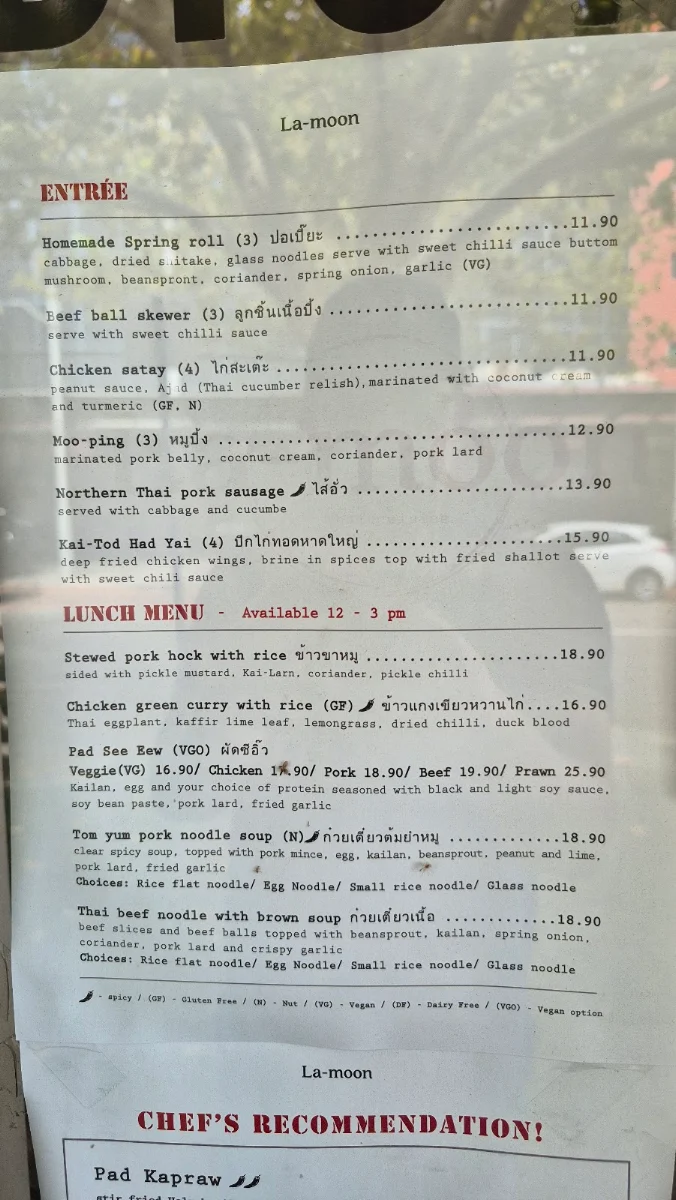 La-moon
ENTRÉE
Homemade Spring roll (3) ปอเปี๊ยะ ........................11.90
cabbage, dried shitake, glass noodles serve with sweet chilli sauce buttom
mushroom, beanspront, coriander, spring onion, garlic (VG)
Beef ball skewer (3) ลูกชิ้นเนื้อปิ้ง ........................11.90
serve with sweet chilli sauce
Chicken satay (4) ไก่สะเต๊ะ ..............................11.90
peanut sauce, Ajad (Thai cucumber relish), marinated with coconut cream
and turmeric (GF, N)
Moo-ping (3) หมูปิ้ง ...................................12.90
marinated pork belly, coconut cream, coriander, pork lard
Northern Thai pork sausage ไส้อั่ว .....................13.90
served with cabbage and cucumbe
Kai-Tod Had Yai (4) ปีกไก่ทอดหาดใหญ่ ....................15.90
deep fried chicken wings, brine in spices top with fried shallot serve
with sweet chili sauce
LUNCH MENU - Available 12 - 3 pm
Stewed pork hock with rice ข้าวขาหมู .....................18.90
sided with pickle mustard, Kai-Larn, coriander, pickle chilli
Chicken green curry with rice (GF) ข้าวแกงเขียวหวานไก่....16.90
Thai eggplant, kaffir lime leaf, lemongrass, dried chilli, duck blood
Pad See Eew (VGO) ผัดซีอิ๊ว
Veggie(VG) 16.90/ Chicken .90/ Pork 18.90/ Beef 19.90/ Prawn 25.90
Kailan, egg and your choice of protein seasoned with black and light soy sauce,
soy bean paste, pork lard, fried garlic
Tom yum pork noodle soup (N) ก๋วยเตี๋ยวต้มยำหมู .............18.90
clear spicy soup, topped with pork mince, egg, kailan, beansprout, peanut and lime,
pork lard, fried garlic
Choices: Rice flat noodle/ Egg Noodle/ Small rice noodle/ Glass noodle
Thai beef noodle with brown soup ก๋วยเตี๋ยวเนื้อ .............18.90
beef slices and beef balls topped with beansprout, kailan, spring onion,
coriander, pork lard and crispy garlic
Choices: Rice flat noodle/ Egg Noodle/ Small rice noodle/ Glass noodle
- spicy / (GF) - Gluten Free / (N) - Nut / (VG) - Vegan / (DF) - Dairy Free / (VGO) - Vegan option
La-moon
CHEF'S RECOMMENDATION!
Pad Kapraw
stir fried